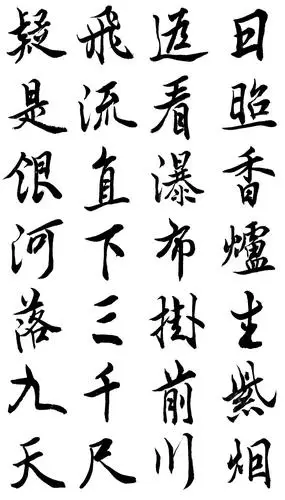 日照香爐生紫烟
遥看瀑布掛前川
飛流直下三千尺
疑是银河落九天